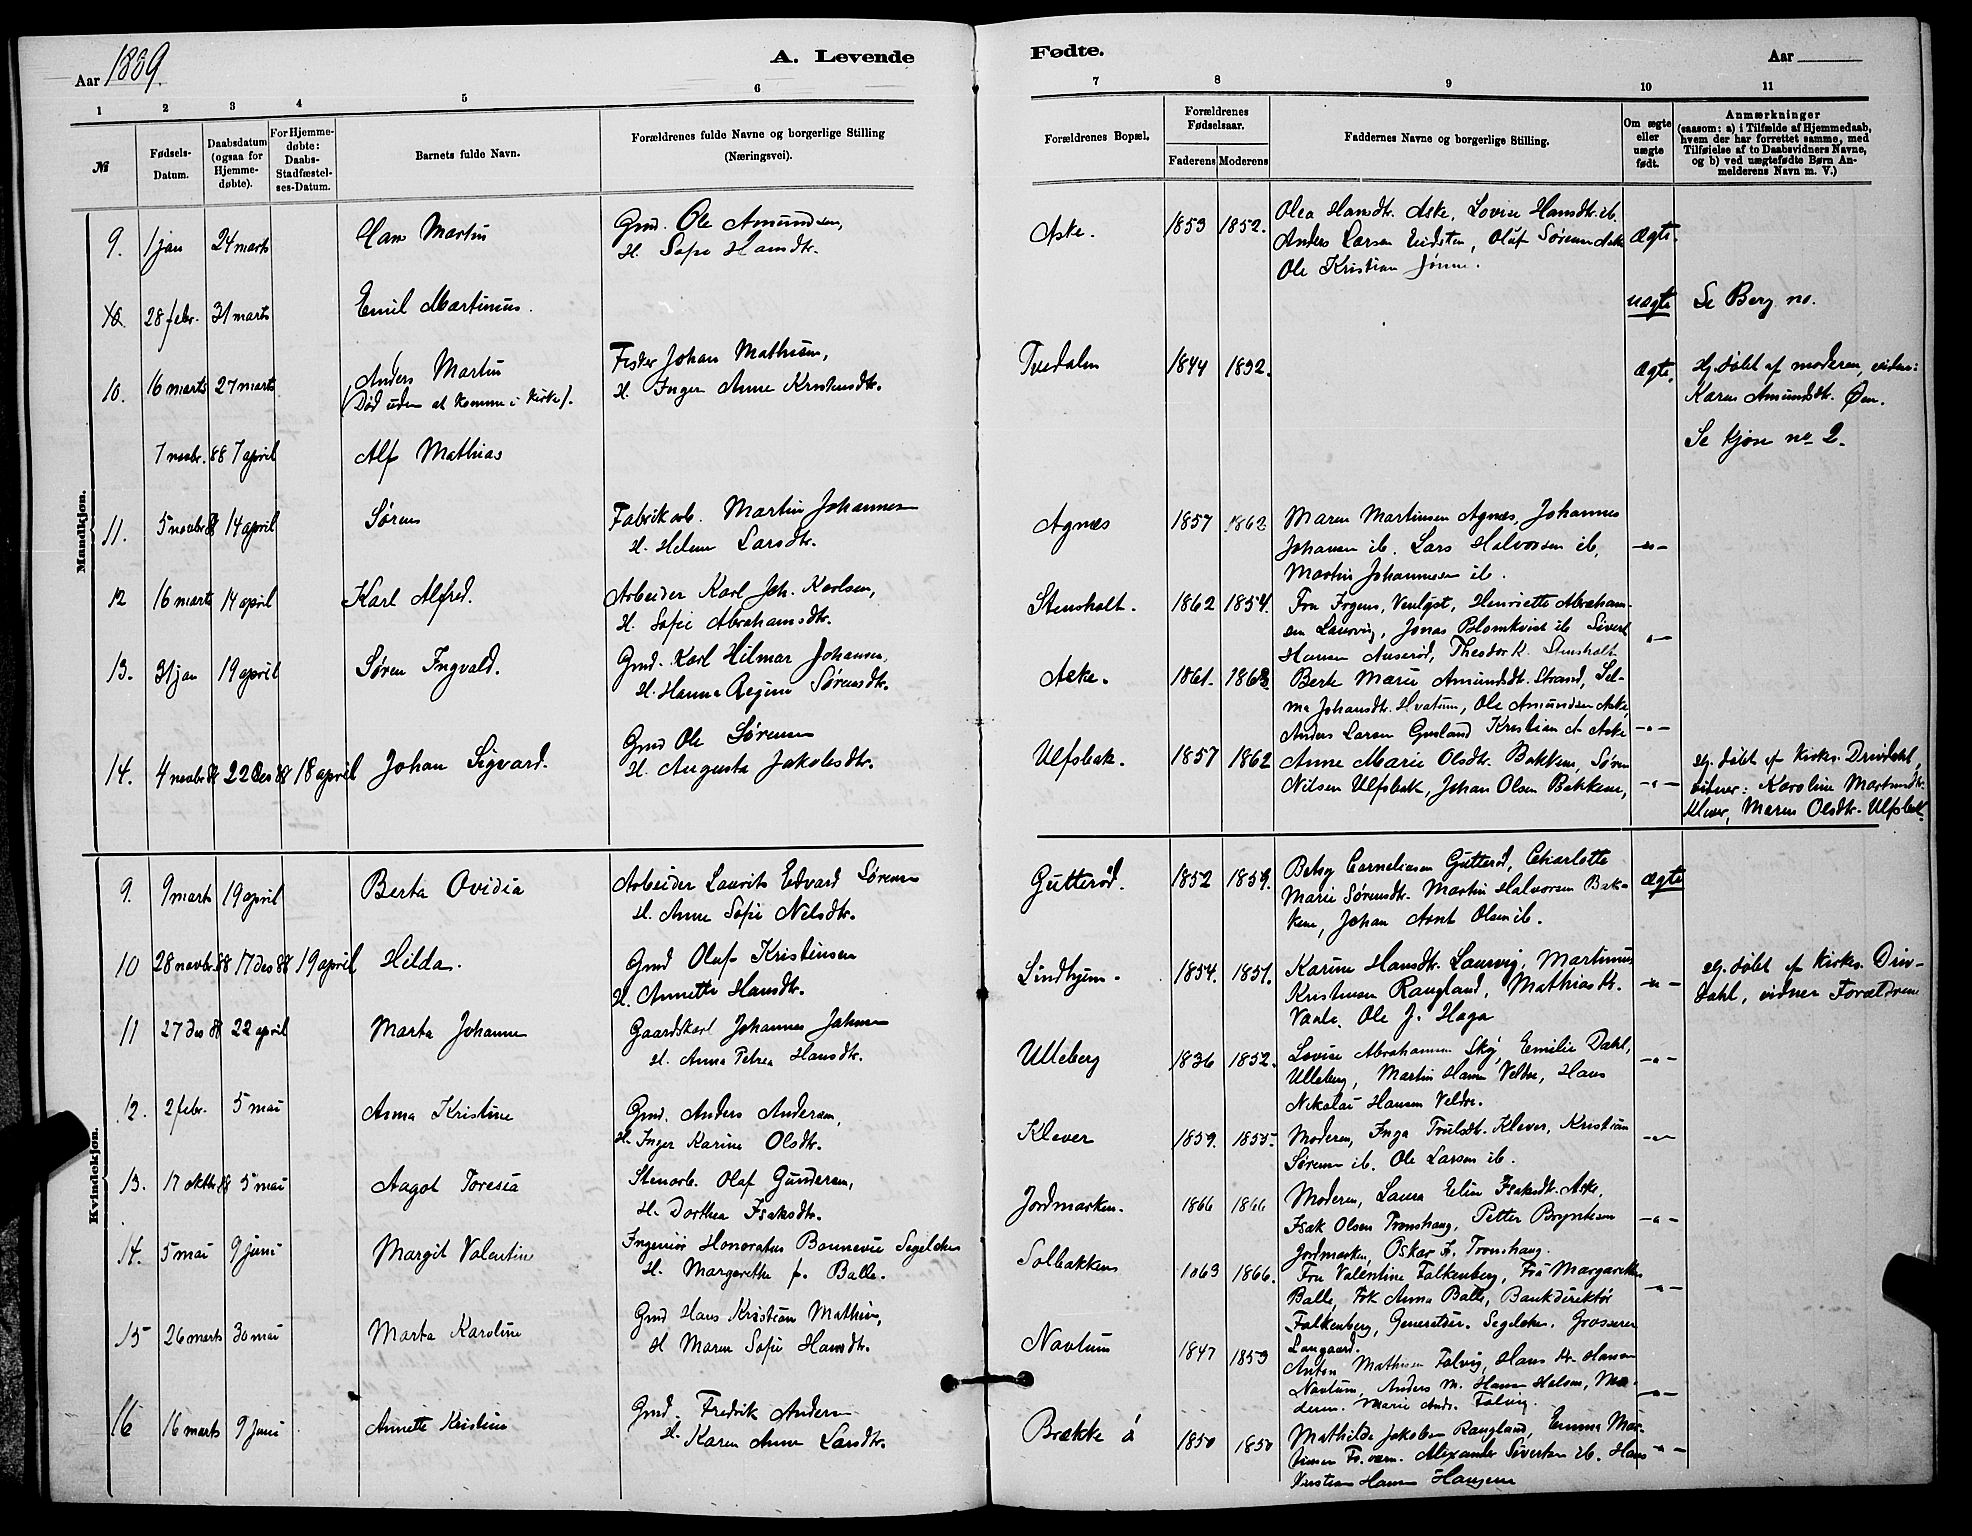 Aar 1889.
A. Levende
Fødte.
Aar
1 2 3 4 5 6 7 8 9 10 11
№
Fødsels-Datum.
Daabsdatum (ogsaa for Hjemme-døbte).
For Hjemme-døbte: Daabs-Stadfæstel-ses-Datum.
Barnets fulde Navn.
Forældrenes fulde Navne og borgerlige Stilling
(Næringsvei).
Forældrenes Bopæl.
Forældrenes Fødselsaar.
Faderens Moderens
Faddernes Navne og borgerlige Stilling.
Om ægte eller uægte født.
Anmærkninger
(saasom: a) i Tilfælde af Hjemmedaab,
hvem der har forrettet samme, med
Tilføielse af to Daabsvidners Navne,
og b) ved uægtefødte Børn An-
melderens Navn m. V.)
Mandkjøn.
9. 1 jan 24 marts Hans Martin Gmd. Ole Amundsen,
H. Sofie Hansdtr.
Aske. 1853 1852.
Olea Hansdtr. Aske, Lovise Hansdtr. ib.
Anders Larsen Eidsten, Oluf Sørensen Aske
Ole Kristian
Ægte.
10. 28 febr. 31 marts Emil Martinus. uægte Se Berg no.
10. 16 marts 27 marts Anders Martin
(Død uden at komme i kirke).
Fisker Johan Mathisen,
H. Inger Anne Kristensdtr.
Tvedalen 1844 1832. Ægte.
Hj. døbt af moderen, vidne:
Karen Amundsdtr. Øen.
7 novbr. 88 7 april Alf Mathias Se Kjøse no 2.
11. 5 novbr 88 14 april Søren Fabrikarb. Martin Johannesen
H. Helene Larsdtr.
Agnæs 1857 1862
Maren Martinsen Agnæs, Johannes
Johansen ib. Lars Halvorsen ib,
Martin Johannesen ib.
-"-
12 16 marts 14 april Karl Alfred. Arbeider Karl Joh. Karlsen,
H. Sofie Abrahamsdtr.
Stensholt. 1862 1854.
Fru Irgens, Venlyst, Henriette Abraham-
sen Laurvig, Jonas Blomkvist ib Sivert
Hansen Auserød, Theodor K. Stensholt
-"-
13. 31 jan 19 april Søren Ingvald. Gmd. Karl Hilmar Johansen,
H. Hanna Regine Sørensdtr.
Aske. 1861. 1863.
Berte Marie Amundsdtr. Strand, Sel-
ma Johansdtr. Hvatum, Ole Amundsen Aske,
Anders Larsen Gusland Kristian A Aske
-"-
14. 4 novbr 88 22 des 88 18 april Johan Sigvard. Gmd Ole Sørensen
H. Augusta Jakobsdtr.
Ulfsbak. 1857 1862
Anne Marie Olsdtr. Bakken, Søren
Nilsen Ulfsbak, Johan Olsen Bakkene,
-"-
Hj. døbt af Kirkes. Drivdahl,
vidner: Karoline
Klever, Maren Olsdtr. Ulfsbak.
Kvindekjøn.
9. 9 marts 19 april Berta Ovidia Arbeider Laurits Edvard Sørensen
H. Anne Sofie Nilsdtr.
Gutterød. 1852 1859.
Betsy Corneliussen Gutterød, Charlotte
Marie Sørensdtr. Martin Halvorsen Bak-
kene, Johan Arnt Olsen ib.
Ægte
10 28 novbr. 88 17 des 88 19 april Hilda. Gmd Oluf Kristensen
H. Annette Hansdtr.
Lindhjem. 1854. 1851.
Karine Hansdtr. Laurvig, Martinus
Kristensen Raugland, Mathiasdtr.
Vaale. Ole J. Haga
-"-
Hj. døbt af Kirkes. Driv-
dahl, vidner Forældrene
11 27 des 88 22 april Marta Johanne Gaardskarl Johannes Jahnsen
H. Anna Petrea Hansdtr.
Ulleberg 1836 1852.
Lovise Abrahamsen Sky, Emilie Dahl,
Ulleberg, Martin Hansen Veldre, Hans
Nikolai Hansen Veldre.
-"-
12. 2 febr. 5 mai Anna Kristine Gmd. Anders Andersen,
H. Inger Karine Olsdtr.
Klever 1859. 1855.
Moderen, Inga Trulsdtr. Klever, Kristian
Sørensen ib. Ole Larsen ib.
-"-
13. 17 oktbr 88 5 mai Aagot Toresia Stenarb. Olaf Gundersen,
H. Dorthea Isaksdtr.
Jordmarken. 1866 1866
Moderen, Laura Elin Isaksdtr. Aske,
Isak Olsen Tronshaug, Petter Bryntesen
Jordmarken, Oskar I. Tronshaug.
-"-
14. 5 mai 9 juni Margit Valentine Ingeniør Honoratus Bonnevie Segelcke
H. Margarethe f. Balle.
Solbakken 1863 1866.
Fru Valentine Falkenberg, Fru Margarethe
Balle, Frk Anna Balle, Bankdirektør
Falkenberg, Segelcke, Grosserer
Langaard.
-"-
15 26 marts 30 mai Marta Karoline Gmd Hans Kristian Mathisen,
H Maren Sofie Hansdtr.
Navtum 1847 1853
Anton Mathisen Falvig, Hans Kr. Hansen
Navtum, Anders M. Hansen, Mo-
deren. Marie Falvig.
-"-
16 16 marts 9 juni Annette Kristine Gmd. Fredrik Andersen
H. Karen Anne Larsdtr.
Brække ø 1850 1850
Mathilde Jakobsen Raugland, Emma Mar-
tinsen Alexander Sivertsen ib. Hans
Kristian Hansen Haugene
-"-